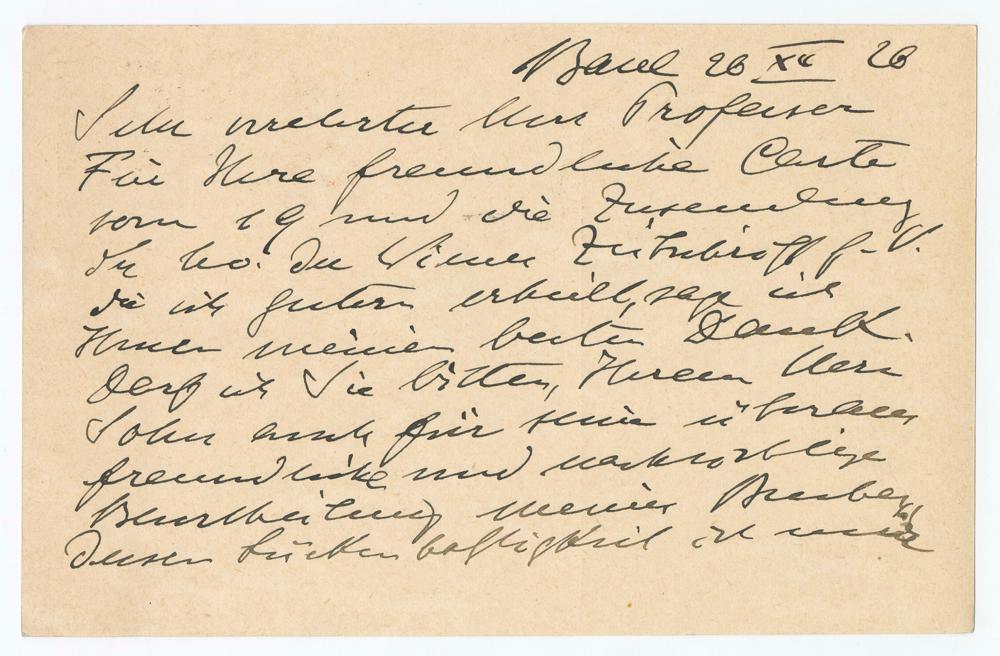 Basel 26 XII 26
Sehr verehrter Herr Professor
Für Ihre freundliche Carte
vom 19 und die Zusendung
der No. der Wiener Zeitschrift f. V.
die ich gestern erhielt, sage ich
Ihnen meinen besten Dank.
Darf ich Sie bitten, Ihrem Herrn
Sohn auch für seine überaus
freundliche und
Beurtheilung meiner
dessen Lückenhaftigkeit ist mir